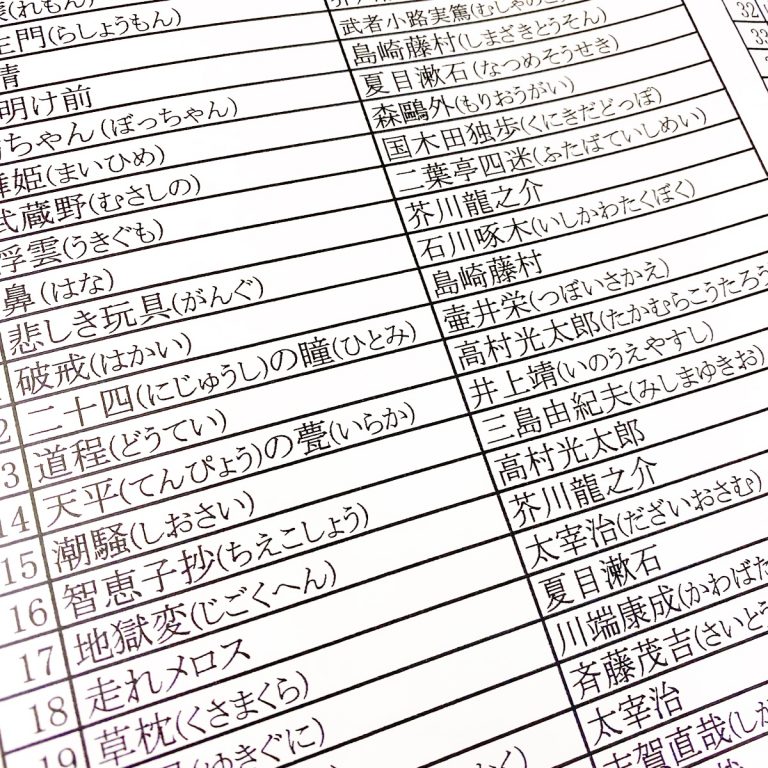 (れもん)
生門(らしょうもん)
情 武者小路実篤(むしゃのこ
明け前 島崎藤村(しまざきとうそん)
ちゃん(ぼっちゃん) 夏目漱石(なつめそうせき)
舞姫(まいひめ) 森鷗外(もりおうがい)
武蔵野(むさしの) 国木田独歩(くにきだどっぽ)
浮雲(うきぐも) 二葉亭四迷(ふたばていしめい)
鼻(はな) 芥川龍之介
悲しき玩具(がんぐ) 石川啄木(いしかわたくぼく)
破戒(はかい) 島崎藤村
2 二十四(にじゅうし)の瞳(ひとみ) 壷井栄(つぼいさかえ)
3 道程(どうてい) 高村光太郎(たかむらこうたろう
14 天平(てんぴょう)の甍(いらか) 井上靖(いのうえやすし)
15 潮騒(しおさい) 三島由紀夫(みしまゆきお)
16 智恵子抄(ちえこしょう) 高村光太郎
17 地獄変(じごくへん) 芥川龍之介
18 走れメロス 太宰治(だざいおさむ)
19 草枕(くさまくら) 夏目漱石
(ゆきぐに) 川端康成(かわばた
斉藤茂吉(さいとう
太宰治
志賀直哉(しが
32
33